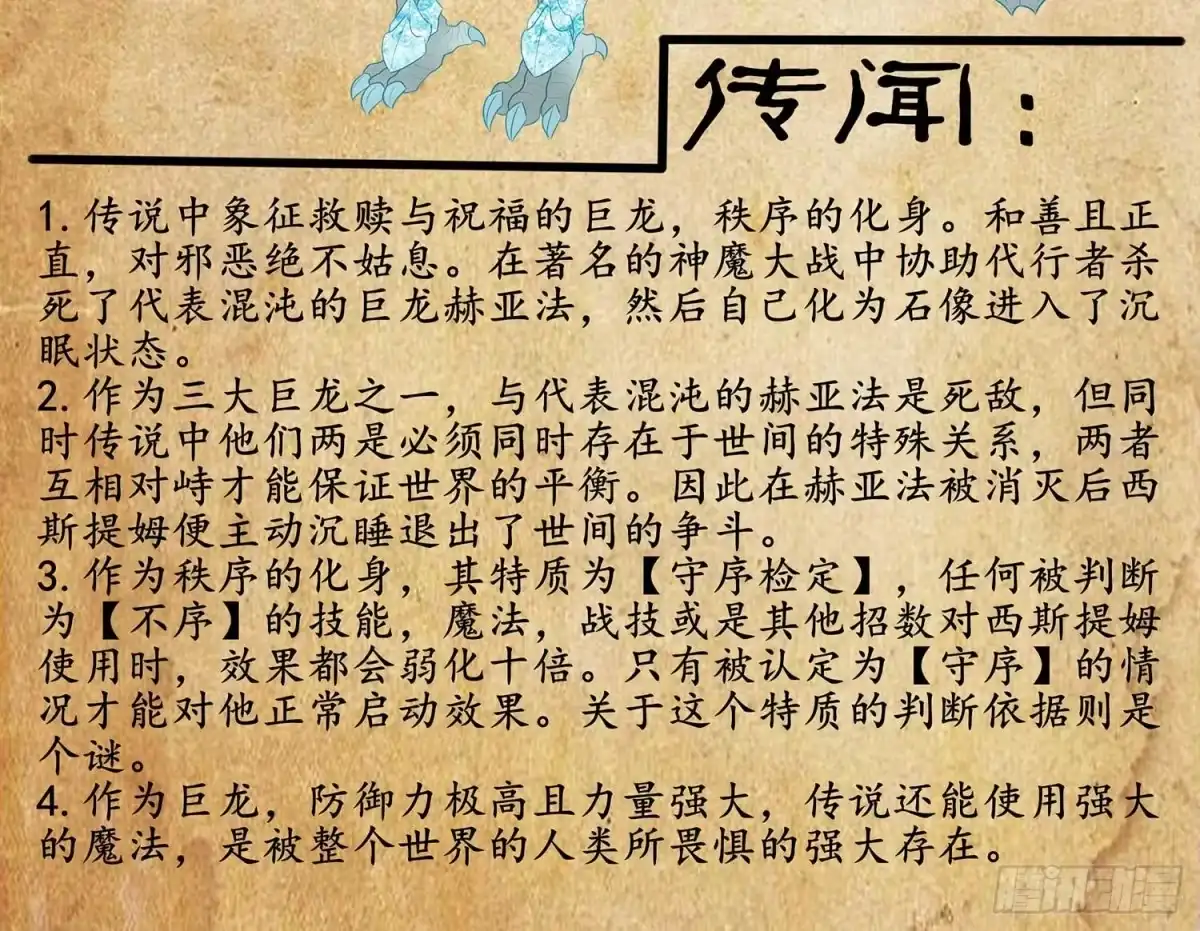 传闻：
1. 传说中象征救赎与祝福的巨龙，秩序的化身。和善且正
直，对邪恶绝不姑息。在著名的神魔大战中协助代行者杀
死了代表混沌的巨龙赫亚法，然后自己化为石像进入了沉
眠状态。
2. 作为三大巨龙之一，与代表混沌的赫亚法是死敌，但同
时传说中他们两是必须同时存在于世间的特殊关系，两者
互相对峙才能保证世界的平衡。因此在赫亚法被消灭后西
斯提姆便主动沉睡退出了世间的争斗。
3. 作为秩序的化身，其特质为【守序检定】，任何被判断
为【不序】的技能，魔法，战技或是其他招数对西斯提姆
使用时，效果都会弱化十倍。只有被认定为【守序】的情
况才能对他正常启动效果。关于这个特质的判断依据则是
个谜。
4. 作为巨龙，防御力极高且力量强大，传说还能使用强大
的魔法，是被整个世界的人类所畏惧的强大存在。
腾讯动漫